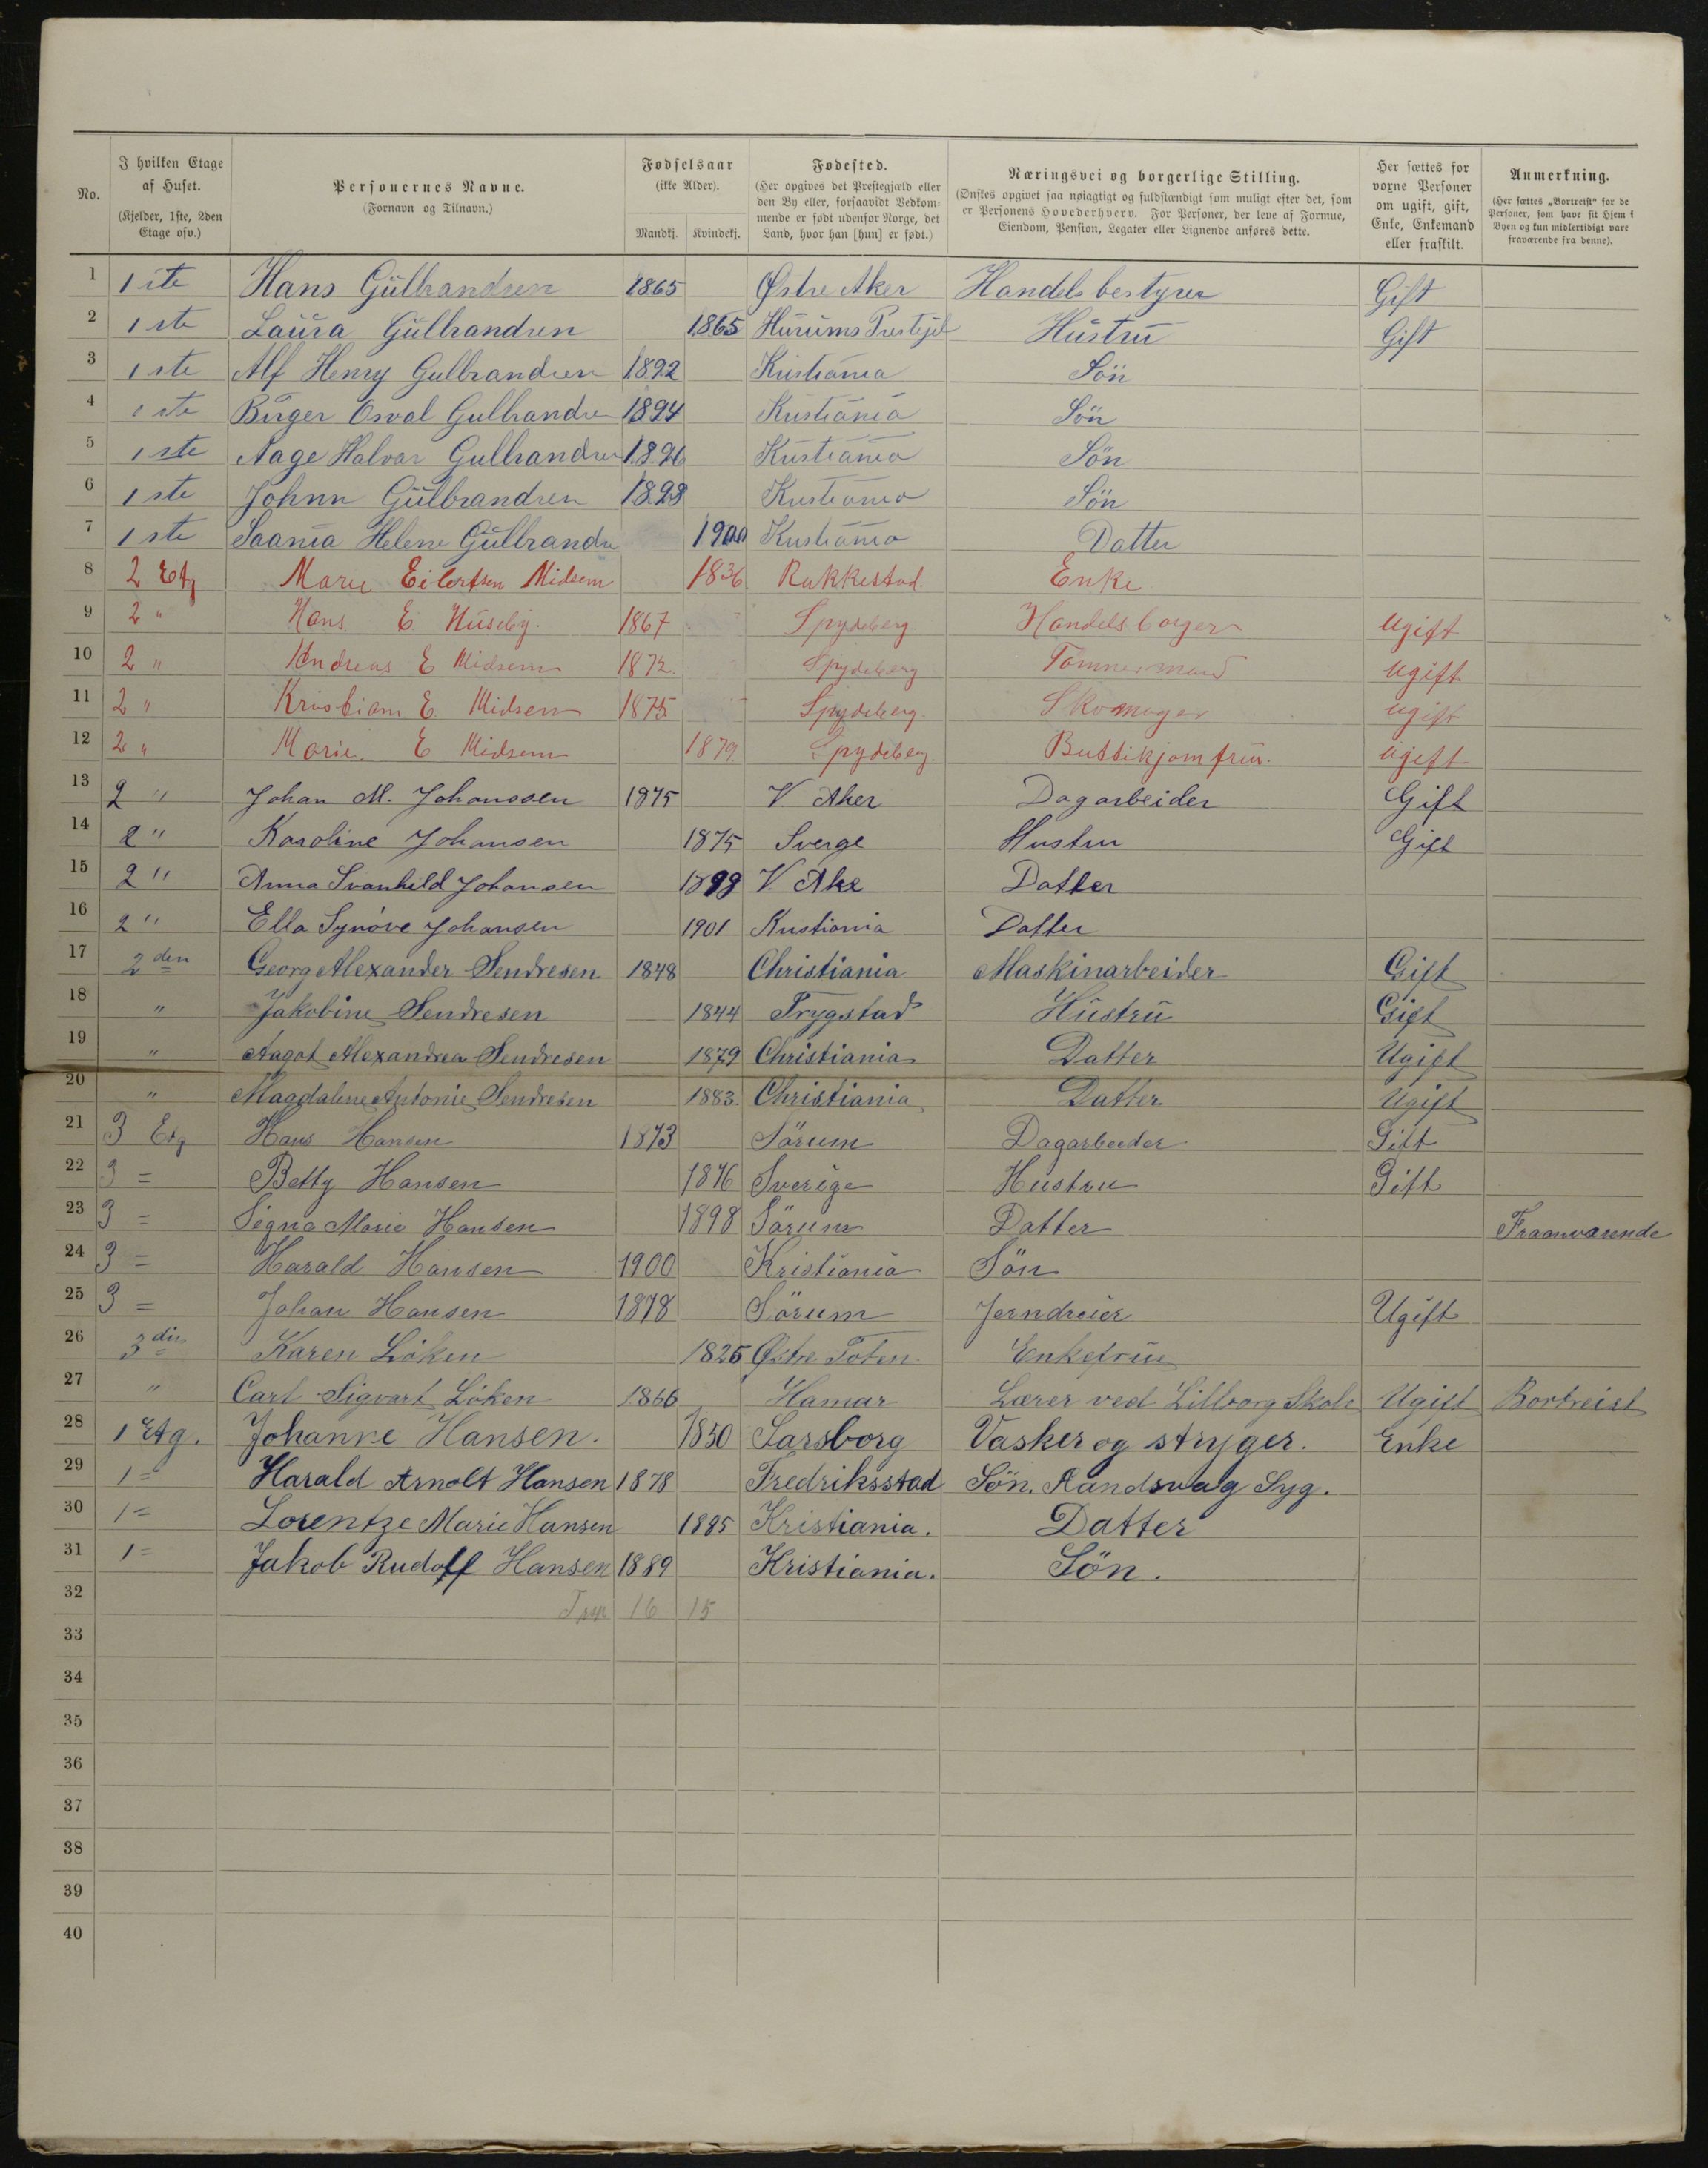 No. | I hvilken Etage af Huset. (Kjelder, 1ste, 2den Etage osv.) | Personernes Navne. (Fornavn og Tilnavn.) | Fødselsaar (ikke Alder). Mandkj. | Kvindekj. | Fødested. (Her opgives det Prestegjæld eller den By eller, forsaavidt Vedkommende er født udenfor Norge, det Land, hvor han [hun] er født.) | Næringsvei og borgerlige Stilling. (Ønskes opgivet saa nøiagtigt og fuldstændigt som muligt efter det, som er Personens Hovederhverv. For Personer, der leve af Formue, Eiendom, Pension, Legater eller Lignende anføres dette. | Her sættes for voxne Personer om ugift, gift, Enke, Enkemand eller fraskilt. | Anmerkning. (Her sættes „Bortreist“ for de Personer, som have sit Hjem i Byen og kun midlertidigt være fraværende fra denne).
1 1 ste Hans Gülbrandsen 1865 Østre Aker Handelsbestyrer Gift
2 1 ste Laüra Gülbrandsen 1865 Hürums Prestejel Hüstrü Gift
3 1 ste Alf Henry Gulbrandsen 1892 Kristiania Sön
4 1 ste Birger Osval Gulbrandse 1894 Kristiania Sön
5 1 ste Aage Halvar Gulbrandse 1896 Kristiania Sön
6 1 ste Johnn Gülbrandsen 1898 Kristiania Sön
7 1 ste Helene Gülbrandse 1900 Kristiania Datter
8 2 Etg Marie Eilertsen Midsem 1836. Rakkestad. Enke
9 2 " Hans. E. Hüseby. 1867 Spydeberg. Handelsborger Ugift
10 2 " Andreas E Midsem 1872. Spydeberg Tømmermand Ugift
11 2 " Kristian E. Midsem 1875 Spydeberg. Skomager Ugift
12 2 " Marie. E Midsem 1879. Spydeberg. Buttikjomfrü. Ugift
13 2 " Johan M. Johanssen 1875 V Aker Dagarbeider Gift
14 2 " Karoline Johansen 1875 Sverge Hustru Gift
15 2 " Anna Svanhild Johansen 1899 V. Ake Datter
16 2 " Ella Synöve Johansen 1901 Kristiania Datter
17 2 den Georg Alexander Sendresen 1848 Christiania Maskinarbeider Gift
18 " Jakobine Sendresen 1844 Trygstad Hüstrü Gift
19 " Aagot Alexandrea Sendresen 1879 Christiania Datter Ugift
20 " Magdalene Antonie Sendresen 1883. Christiania Datter Ugift
21 3 Etg Hans Hansen 1873 Sörum Dagarbeider Gift
22 3 = Betty Hansen 1876 Sverige Hustru Gift
23 3 = Signa Marie Hansen 1898 Sörum Datter Fraanvarende
24 3 = Harald Hansen 1900 Kristiania Sön
25 3 = Johan Hansen 1878 Sörum Jerndreier Ugift
26 3 die Karen Löken 1825 Østre Toten Enkefrue
27 " Carl Sigvart Löken 1866 Hamar Lærer ved Lilleborg Skole Ugift Bortreist
28 1 Etg. Johanne Hansen. 1850 Sarsborg Vasker og stryger. Enke
29 1 = Harald Arnolt Hansen 1878 Fredriksstad Sön. Aandsvag Syg.
30 1 = Lorentze Marie Hansen 1885 Kristiania. Datter
31 1 = Jakob Rudolf Hansen 1889 Kristiania. Sön.
32 16 15
33
34
35
36
37
38
39
40